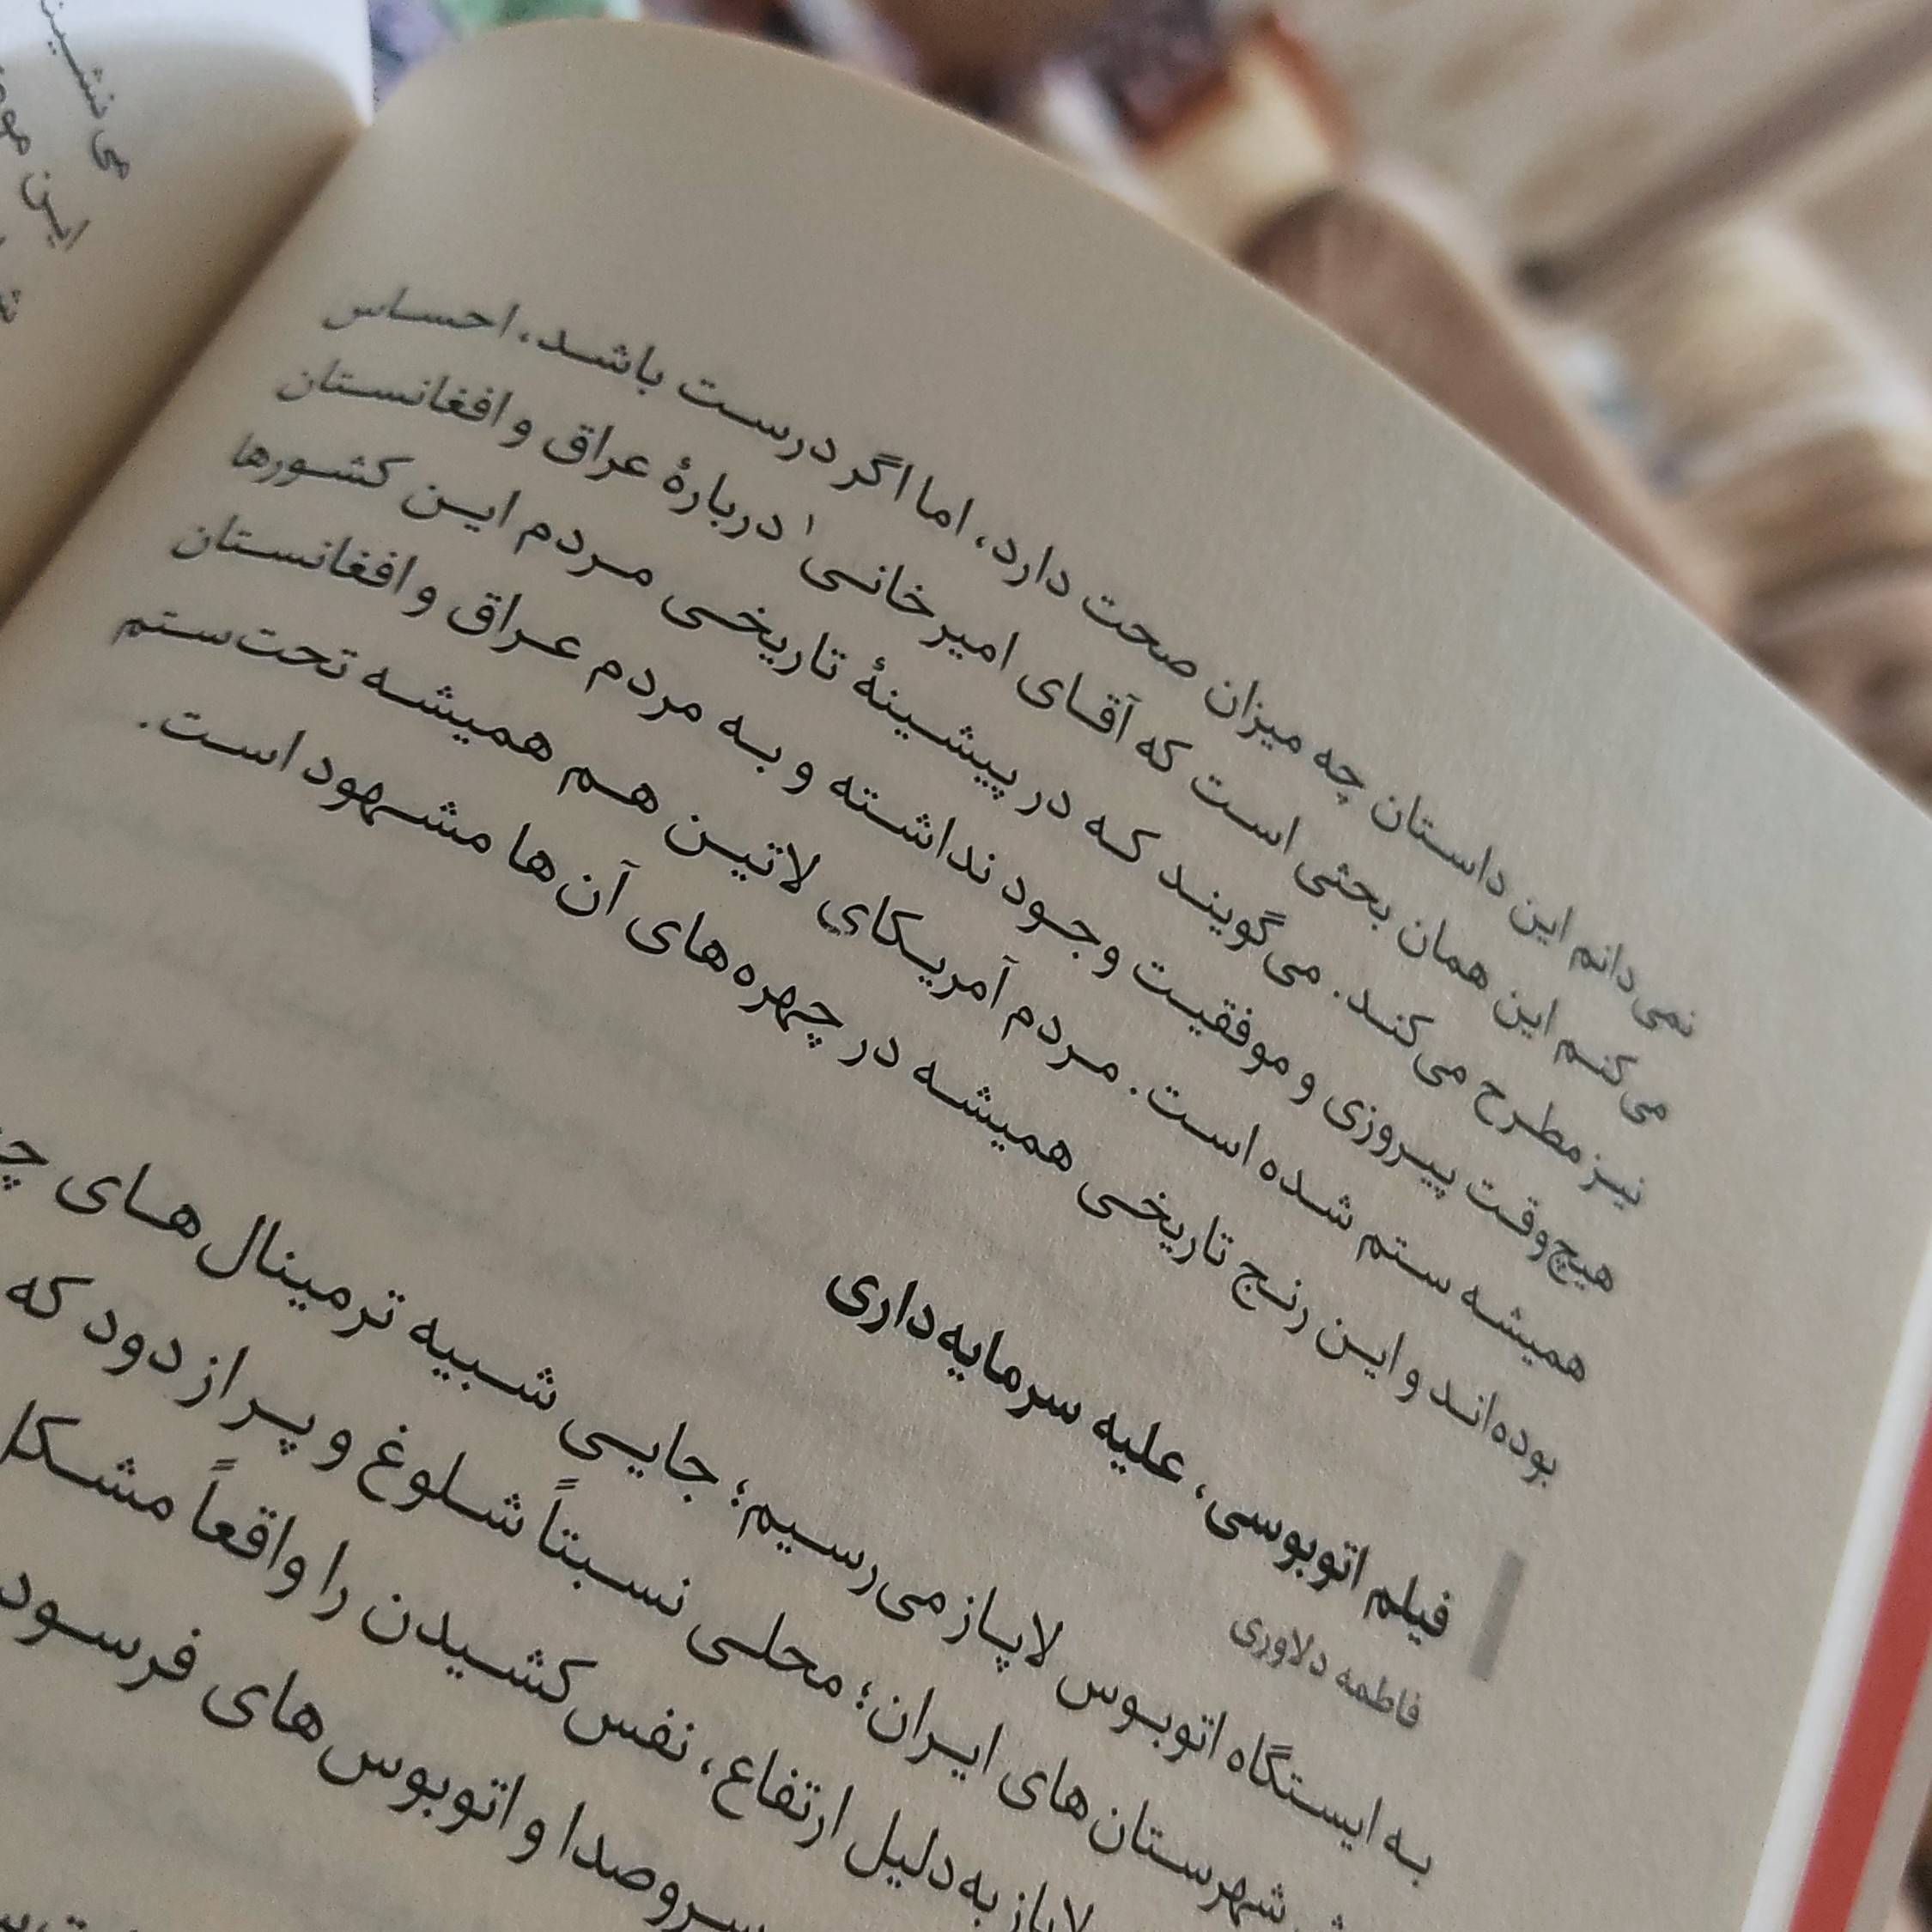 نمی‌دانم این داستان چه میزان صحت دارد، اما اگر درست باشد، احساس
می‌کنم این همان بحثی است که آقای امیرخانی۱ دربارهٔ عراق و افغانستان
نیز مطرح می‌کند. می‌گویند که در پیشینهٔ تاریخی مردم این کشورها
هیچ‌وقت پیروزی و موفقیت وجود نداشته و به مردم عراق و افغانستان
همیشه ستم شده است. مردم آمریکای لاتین هم همیشه تحت‌ستم
بوده‌اند و این رنج تاریخی همیشه در چهره‌های آن‌ها مشهود است.
فیلم اتوبوسی، علیه سرمایه‌داری
فاطمه دلاوری
به ایستگاه اتوبوس لاپاز می‌رسیم؛ جایی شبیه ترمینال‌های
شهرستان‌های ایران؛ محلی نسبتاً شلوغ و پر از دود که
لاپاز به‌دلیل ارتفاع، نفس‌کشیدن را واقعاً
سروصدا و اتوبوس‌های